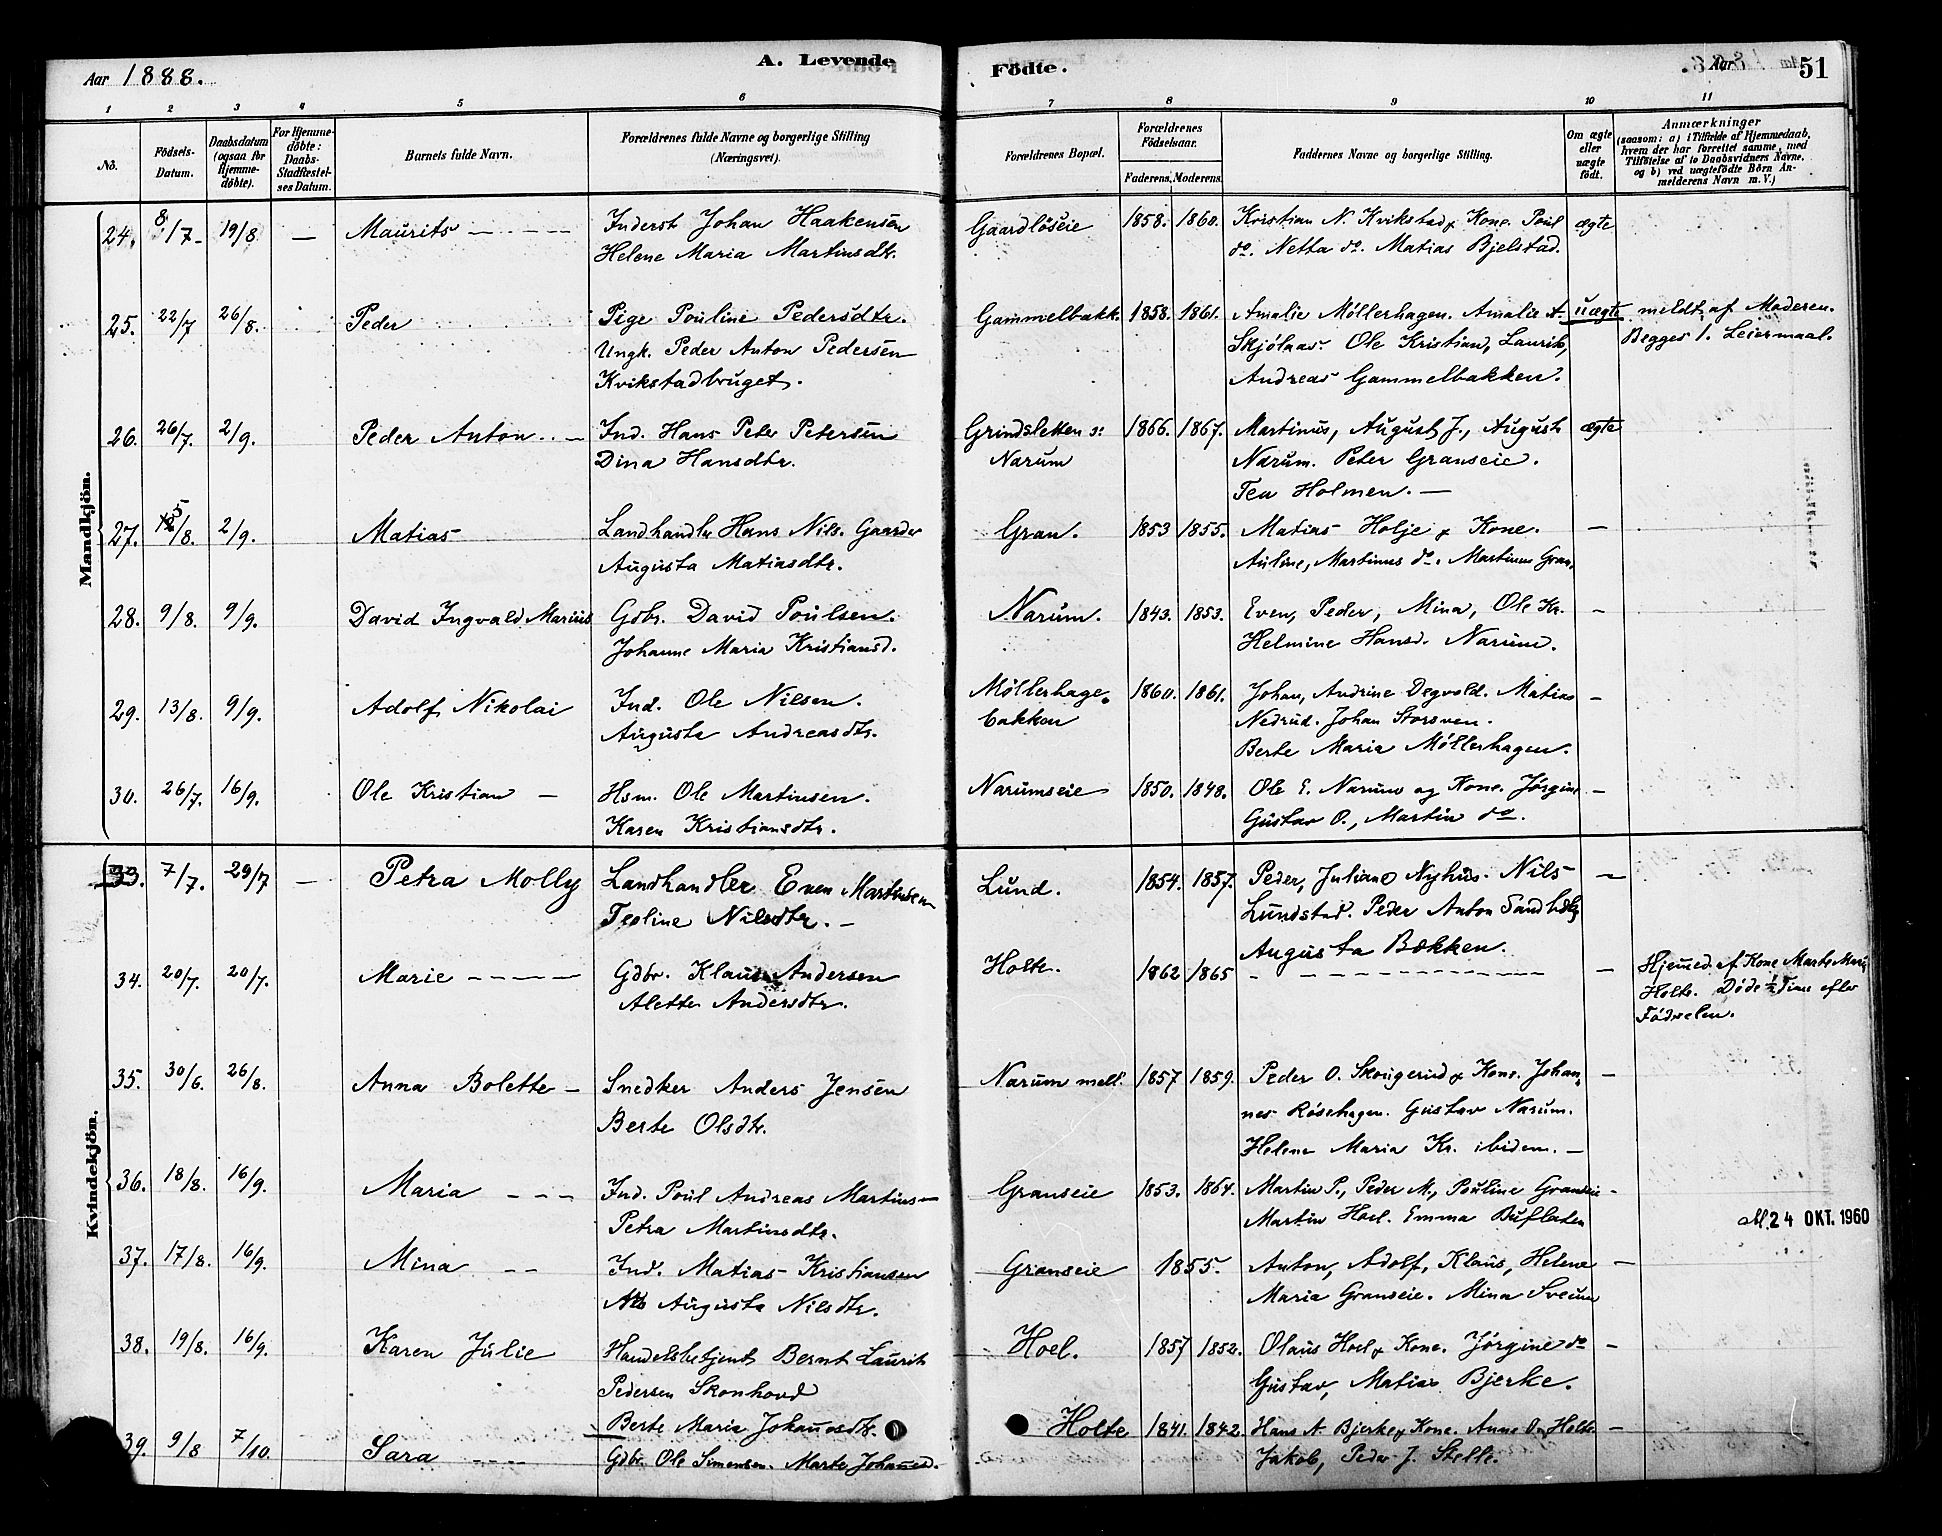 Aar 1888.
A. Levende
Födte.
Aar
51
1 2 3 4 5 6 7 8 9 10 11
Nô.
Födsels-
Datum.
Daabsdatum
(ogsaa for
Hjemme-
döbte).
For Hjemme-
döbte:
Daabs-
Stadfæstel-
ses Datum.
Barnets fulde Navn.
Forældrenes fulde Navne og borgerlige Stilling
(Næringsvei).
Forældrenes Bopæl.
Forældrenes
Födselsaar.
Faderens. Moderens.
Faddernes Navne og borgerlige Stilling.
Om ægte
eller
uægte
födt.
Anmærkninger
(saasom: a) i Tilfælde af Hjemmedaab,
hvem der har forrettet samme, med
Tilföielse af to Daabsvidners Navne,
og b) ved uægtefödte Börn An-
melderens Navn m. V.)
Mandkjön.
24. 8/7 19/8 — Maurits Inderst Johan Haakensen Gaardløseie 1858. 1860. Kristian N. Kvikstad & Kone. Poul ægte
Helene Maria Martinsdtr. do. Netta do. Matias Bjelstad.
25. 22/7 26/8. Peder Pige Pouline Pedersdtr. Gammelbakk. 1858. 1861. Amalie Møllerhagen. Amalie A. uægte meldt af Moderen.
Ungk. Peder Anton Pedersen Skjølaas. Ole Kristian, Laurits, Begges 1. Leiermaal.
Kvikstadbruget. Andreas Gammelbakken.
26. 26/7. 2/9. Peder Anton Ind. Hans Peter Petersen Grindsletten s: 1866. 1867. Martinus, August J., August ægte
Dina Hansdtr. Narum Narum. Peter Granseie.
Tea Holmen. —
27. 5/8. 2/9. Matias Landhandler Hans Nils. Gaarder Gran. 1853 1855. Matias Holje & Kone. —
Augusta Matiasdtr. Auline, Martinus do. Martinus Gran.
28. 9/8. 9/9. David Ingvald Marius Gdbr. David Poulsen. Narum. 1843. 1853. Even, Peder, Mina, Ole Kr. —
Johanne Maria Kristiansd. Helmine Hansd. Narum.
29. 13/8. 9/9. Adolf Nikolai Ind. Ole Nilsen. Møllerhage- 1860. 1861. Johan, Andrine Degvold. Matias —
Augusta Andreasdtr. bakken Nedrud. Johan Storsven.
Berte Maria Møllerhagen.
30. 26/7. 16/9. Ole Kristian — Hsm. Ole Martinsen. Narumseie 1850. 1848. Ole E. Narum og Kone. Jørgine —
Karen Kristiansdtr. Gustav O., Martin do.
Kvindekjön.
33. 7/7. 29/7 — Petra Molly Landhandler Even Martinsen Lund. 1854. 1857. Peder, Juliane Nyhus. Nils —
Teoline Nilsdtr. — Lundstad. Peder Anton
Augusta Bækken.
34. 20/7. 20/7. Marie Gdbr. Klaus Andersen Holte. 1862 1865 — Hjemmed. af Kone Marte Mari
Alette Andersdtr. Holte. Døde ½ Time efter
Fødselen.
35. 30/6. 26/8. Anna Bolette — Snedker Anders Jensen Narum mell. 1857 1859. Peder O. Skougerud & Kone. Johan- —
Berte Olsdtr. nes Røsehagen. Gustav Narum.
Helene Maria Kr. ibidem. —
36. 18/8. 16/9. Maria Ind. Poul Andreas Martinsen Granseie 1853. 1864. Martin P., Peder M., Pouline Granseie —
Petra Martinsdtr. Martin Hoel. Emma Buflaten
24 OKT. 1960
37. 17/8. 16/9. Mina Ind. Matias Kristiansen Granseie 1855. Anton, Adolf, Klaus, Helene —
Augusta Nilsdtr. Maria Granseie. Mina Sveum
38. 19/8. 16/9. Karen Julie Handelsbetjent Bernt Laurits Hoel. 1857 1852. Olaus Hoel & Kone. Jørgine do —
Pedersen Skonhovd Gustav, Matias Bjerke.
Berte Maria Johannesdtr.
39. 9/8 7/10. Sara Gdbr. Ole Simensen. Marte Johansd. Holte 1841. 1842. Hans A. Bjerke & Kone. Anne O. Holte. —
Jakob, Peder J. Stelte.